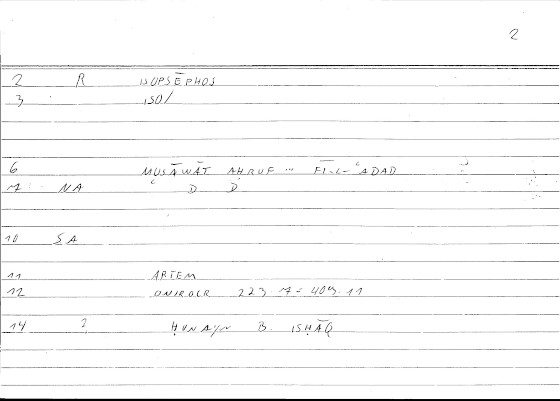 2
2 R ISOPSĒPHOS
3 ISO/
6 MUSĀWĀT AḤRUF ... FĪ-L-ʿADAD
7 NA D D
10 SA
11 ARTEM
12 ONIROCR 223. 7 = 409. 11
14 2 ḤUNAYN B. ISḤĀQ